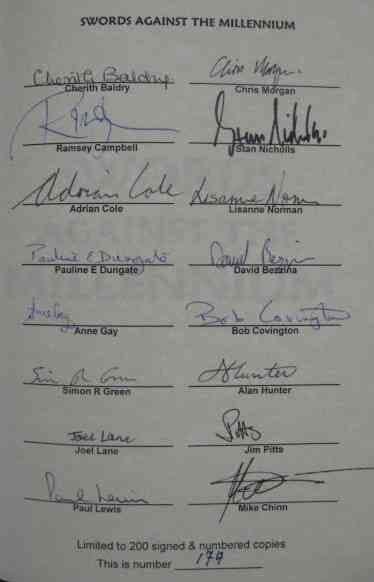 SWORDS AGAINST THE MILLENNIUM
Cherith Baldry Chris Morgan
Cherith Baldry Chris Morgan
Ramsey Campbell Stan Nicholls
Adrian Cole Lisanne Norman
Adrian Cole Lisanne Norman
Pauline E Dungate David Bezzina
Pauline E Dungate David Bezzina
Anne Gay Bob Covington
Anne Gay Bob Covington
Simon R Green A Hunter
Simon R Green Alan Hunter
Joel Lane Pitts
Joel Lane Jim Pitts
Paul Lewis
Paul Lewis Mike Chinn
Limited to 200 signed & numbered copies
This is number 179